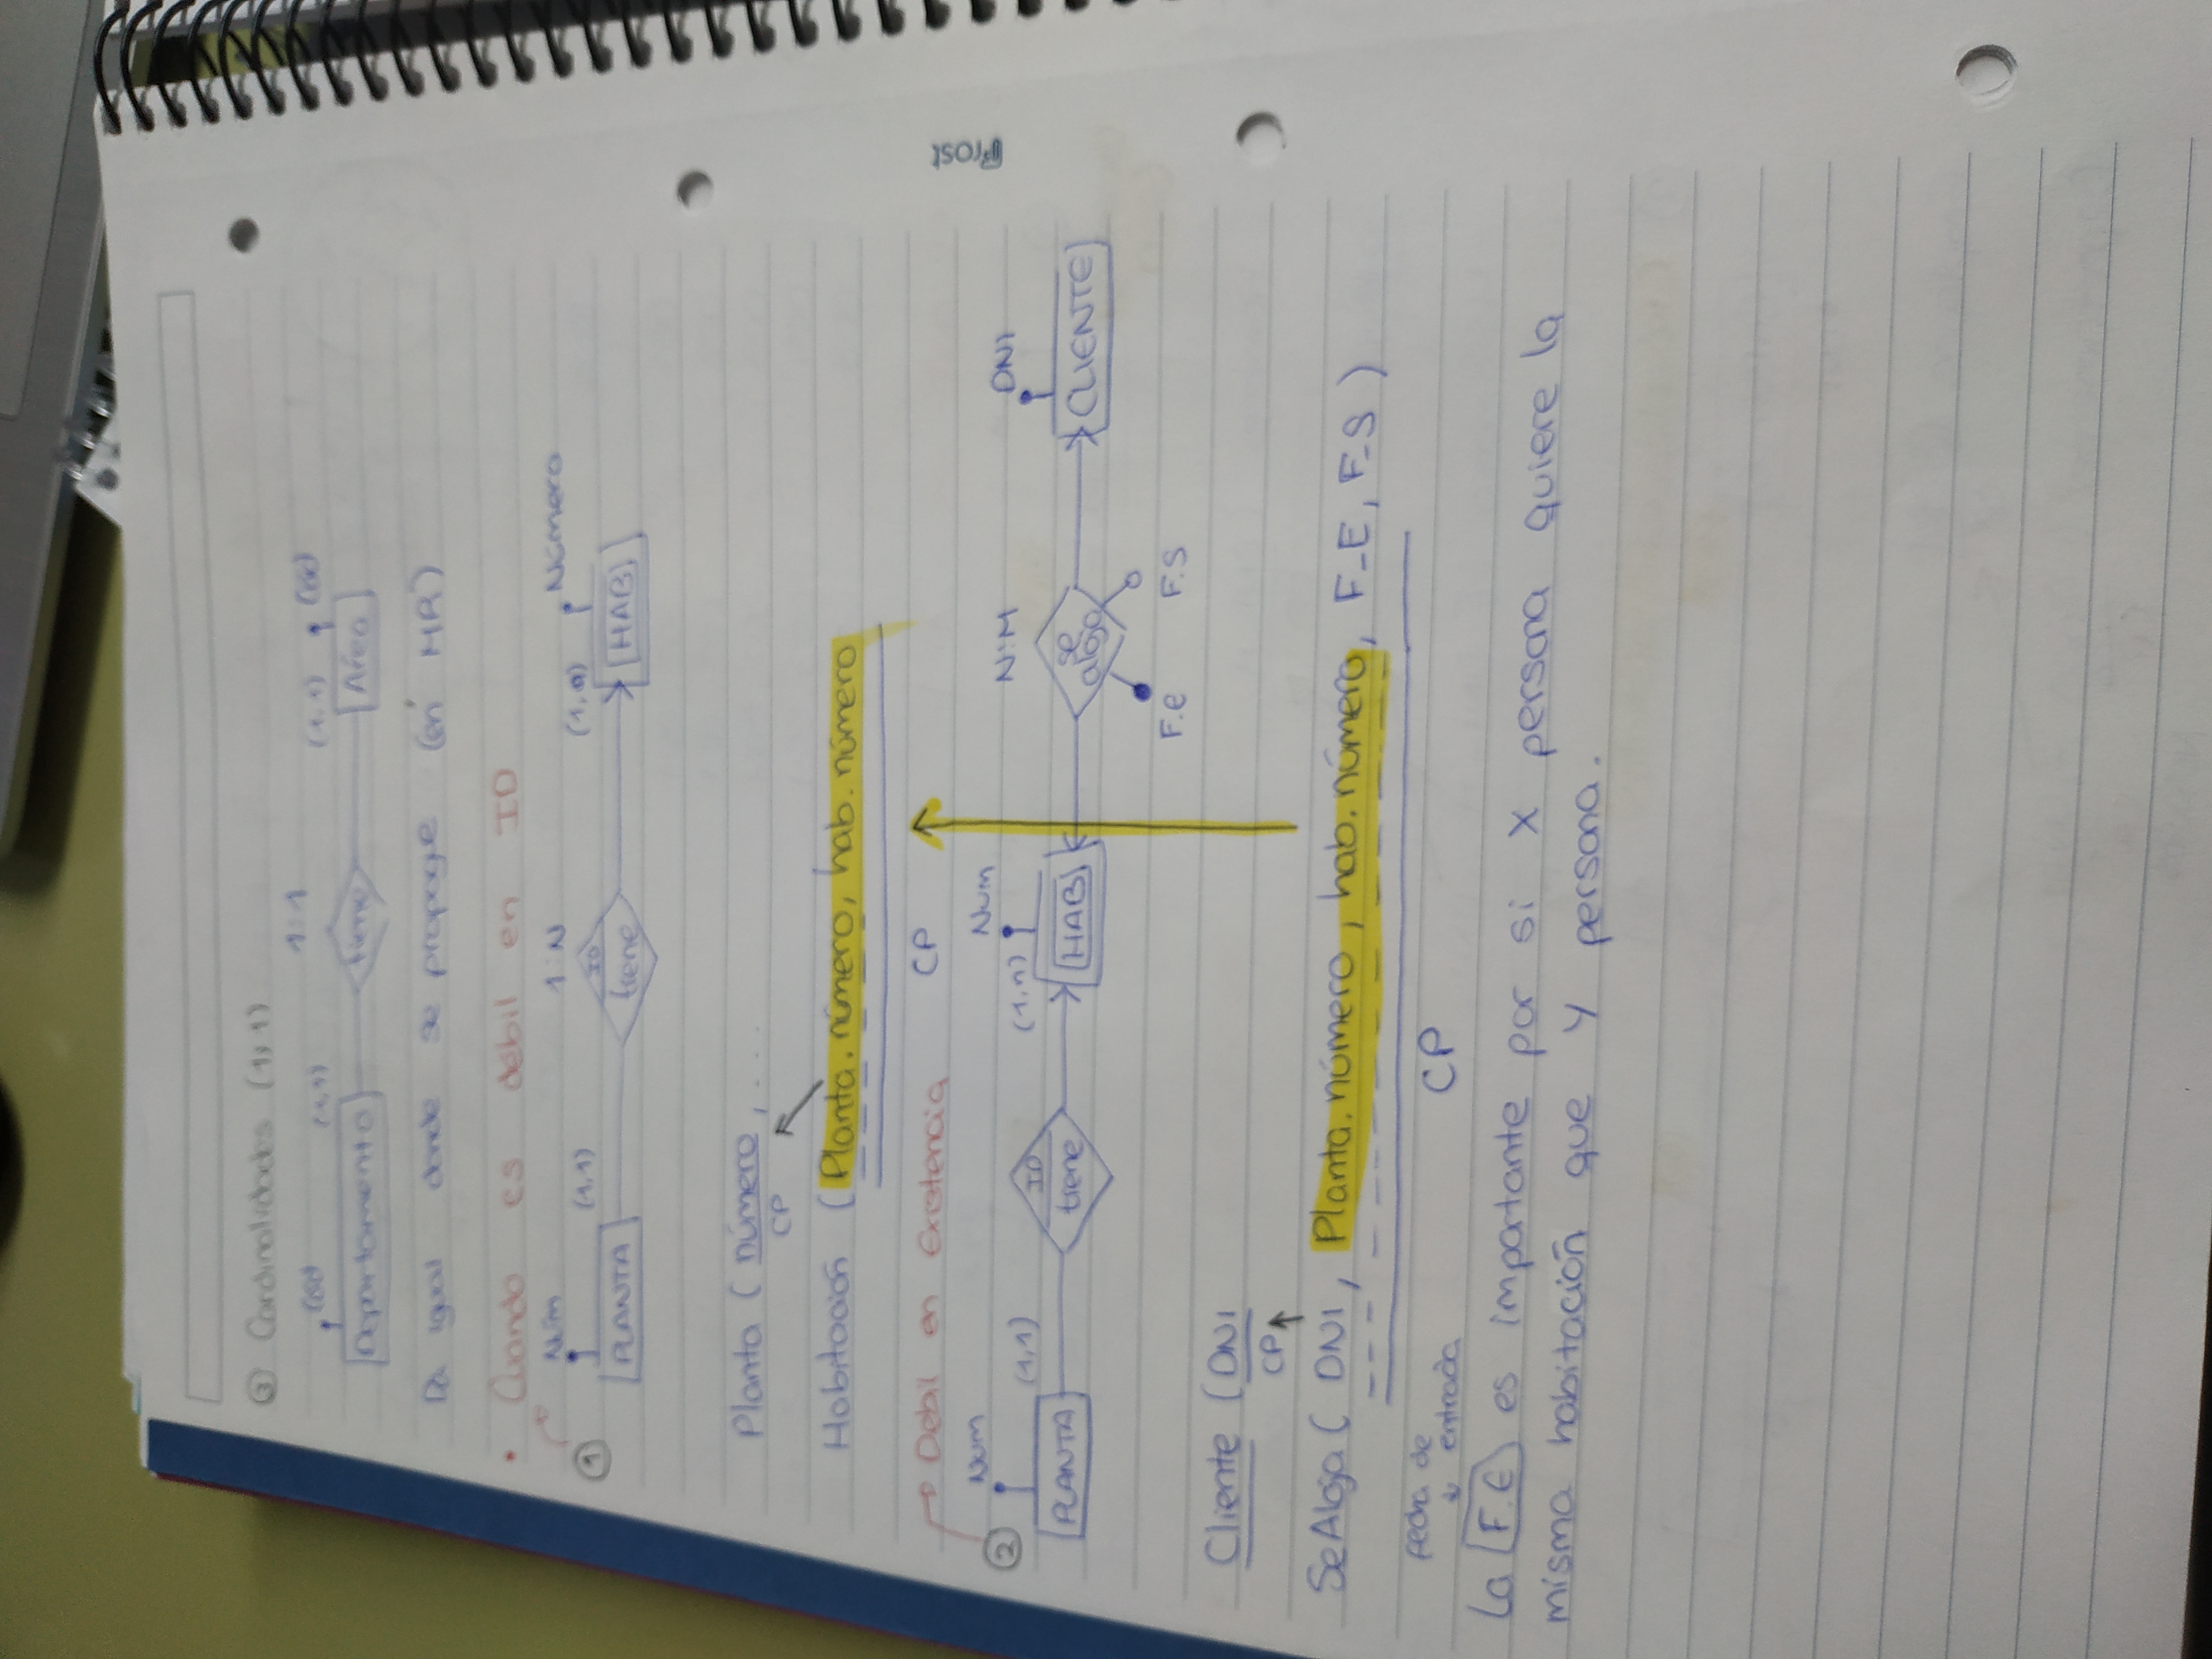 ③ Cardinalidades (1,1)
1:1
Cod (1,1) (1,1) Cod
Departamento tiene Area
Da igual donde se propage (en MR)
• Cuando es débil en ID
Núm 1:N Número
① (1,1) (1,n)
PLANTA ID tiene HAB
Planta ( número, ....
CP
Habitación ( Planta.número, hab.número
CP
→ Debil en Existencia
② Num (1,1) (1,n) Num N:M DNI
PLANTA ID tiene HAB se aloja CLIENTE
F.E F.S
Cliente ( DNI
CP
SeAloja ( DNI, Planta.número, hab.número, F_E, F_S )
CP
fecha de
entrada
La F.E es importante por si X persona quiere la
misma habitación que Y persona.
Prost